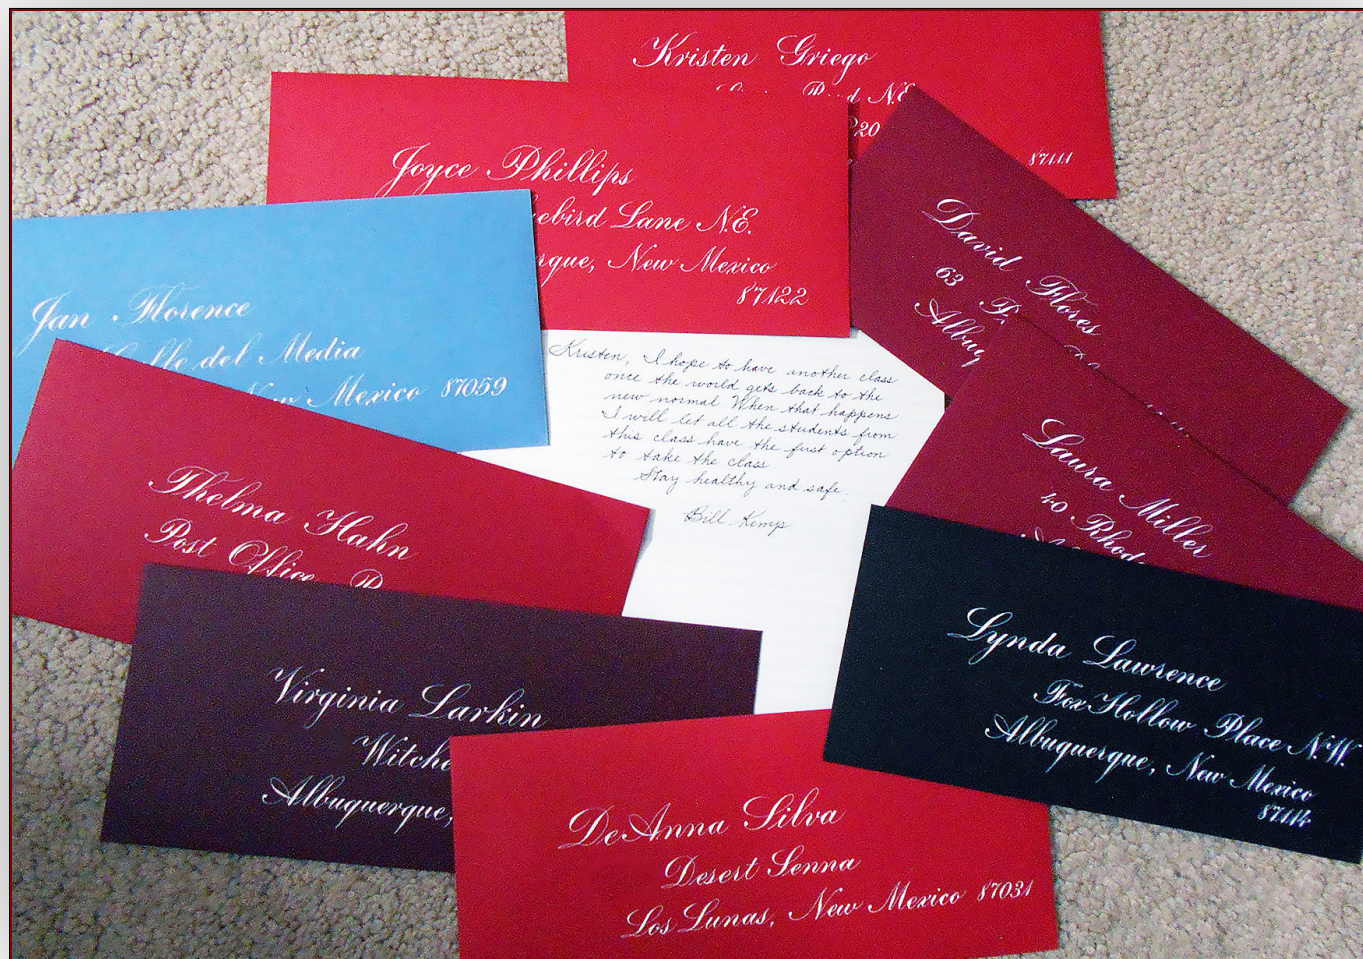 Kristen Griego
Road N.E.
87111
Joyce Phillips
ebird Lane N.E.
rque, New Mexico
87122
David Flores
63
Albuq
Jan Florence
Calle del Media
New Mexico 87059
Kristen, I hope to have another class
once the world gets back to the
new normal. When that happens
I will let all the students from
this class have the first option
to take the class.
Stay healthy and safe.
Bill Kemp
Laura Miller
40 Rhod
Thelma Hahn
Post Office
Lynda Lawrence
Fox Hollow Place N.W.
Albuquerque, New Mexico
87114
Virginia Larkin
Witche
Albuquerque,
DeAnna Silva
Desert Senna
Los Lunas, New Mexico 87031